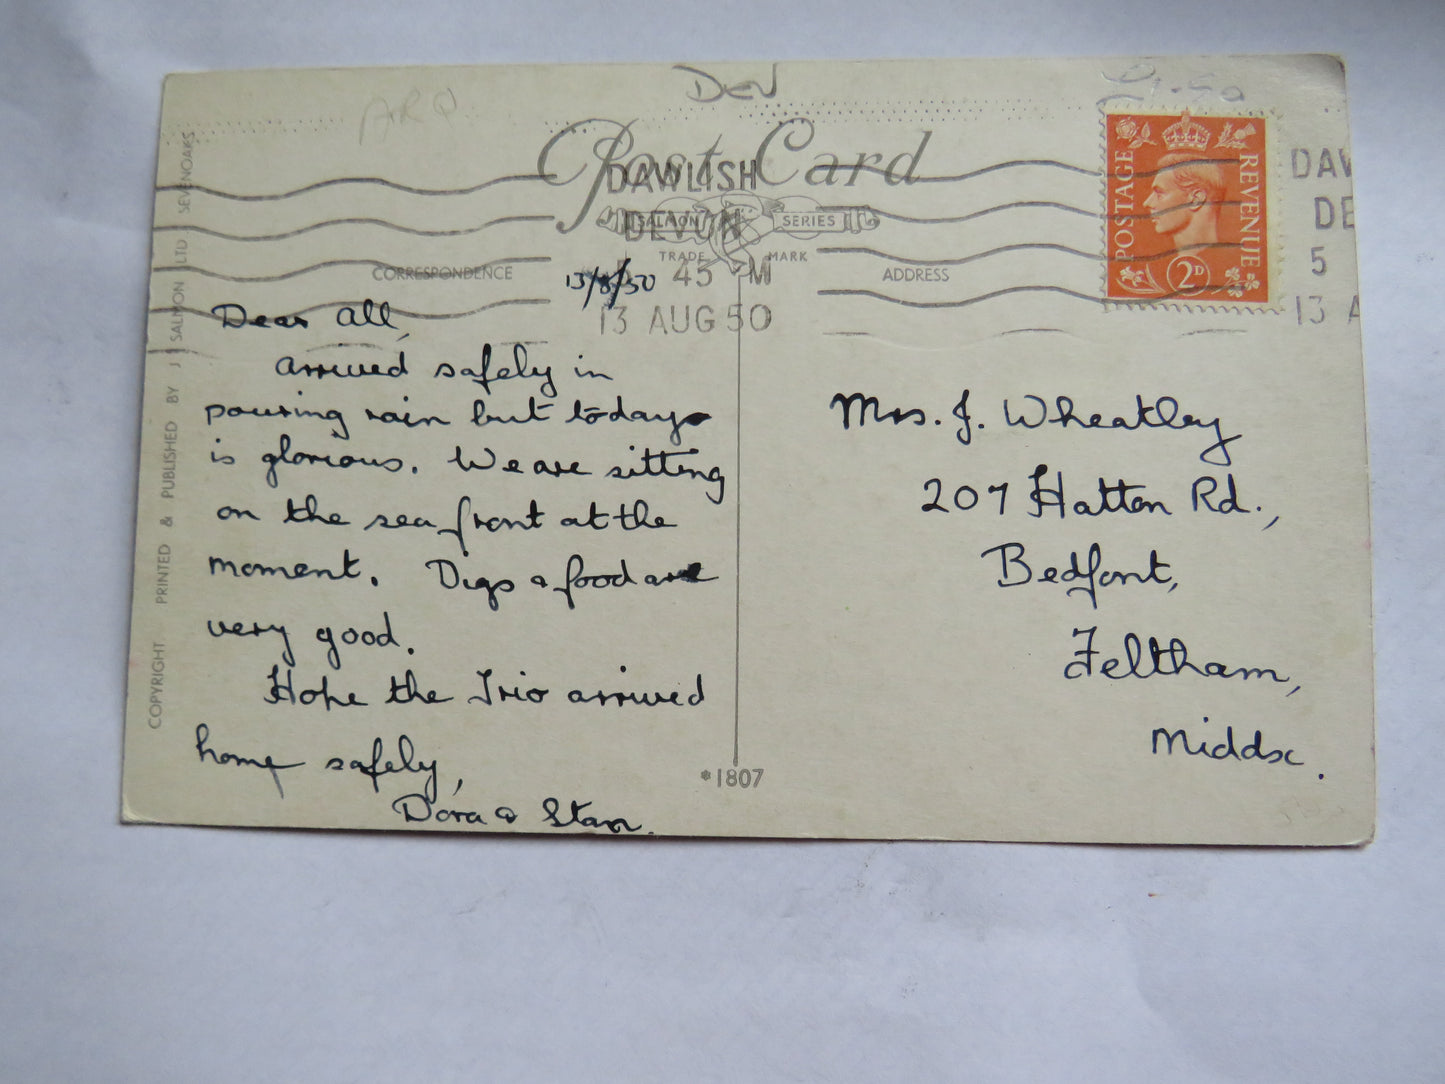 DEV
ARQ
£1.50
Post Card
DAWLISH
DEVON
45 M
13 AUG 50
SALMON SERIES
TRADE MARK
CORRESPONDENCE
ADDRESS
POSTAGE REVENUE
2D
DAW
DE
5
13 A
COPYRIGHT PRINTED & PUBLISHED BY J SALMON LTD SEVENOAKS
13/8/50
Dear All,
arrived safely in
pouring rain but today
is glorious. We are sitting
on the sea front at the
moment. Digs & food are
very good.
Hope the Trio arrived
home safely,
Dora & Stan.
Mrs. J. Wheatley
207 Hatton Rd.,
Bedfont,
Feltham,
Middx.
*1807